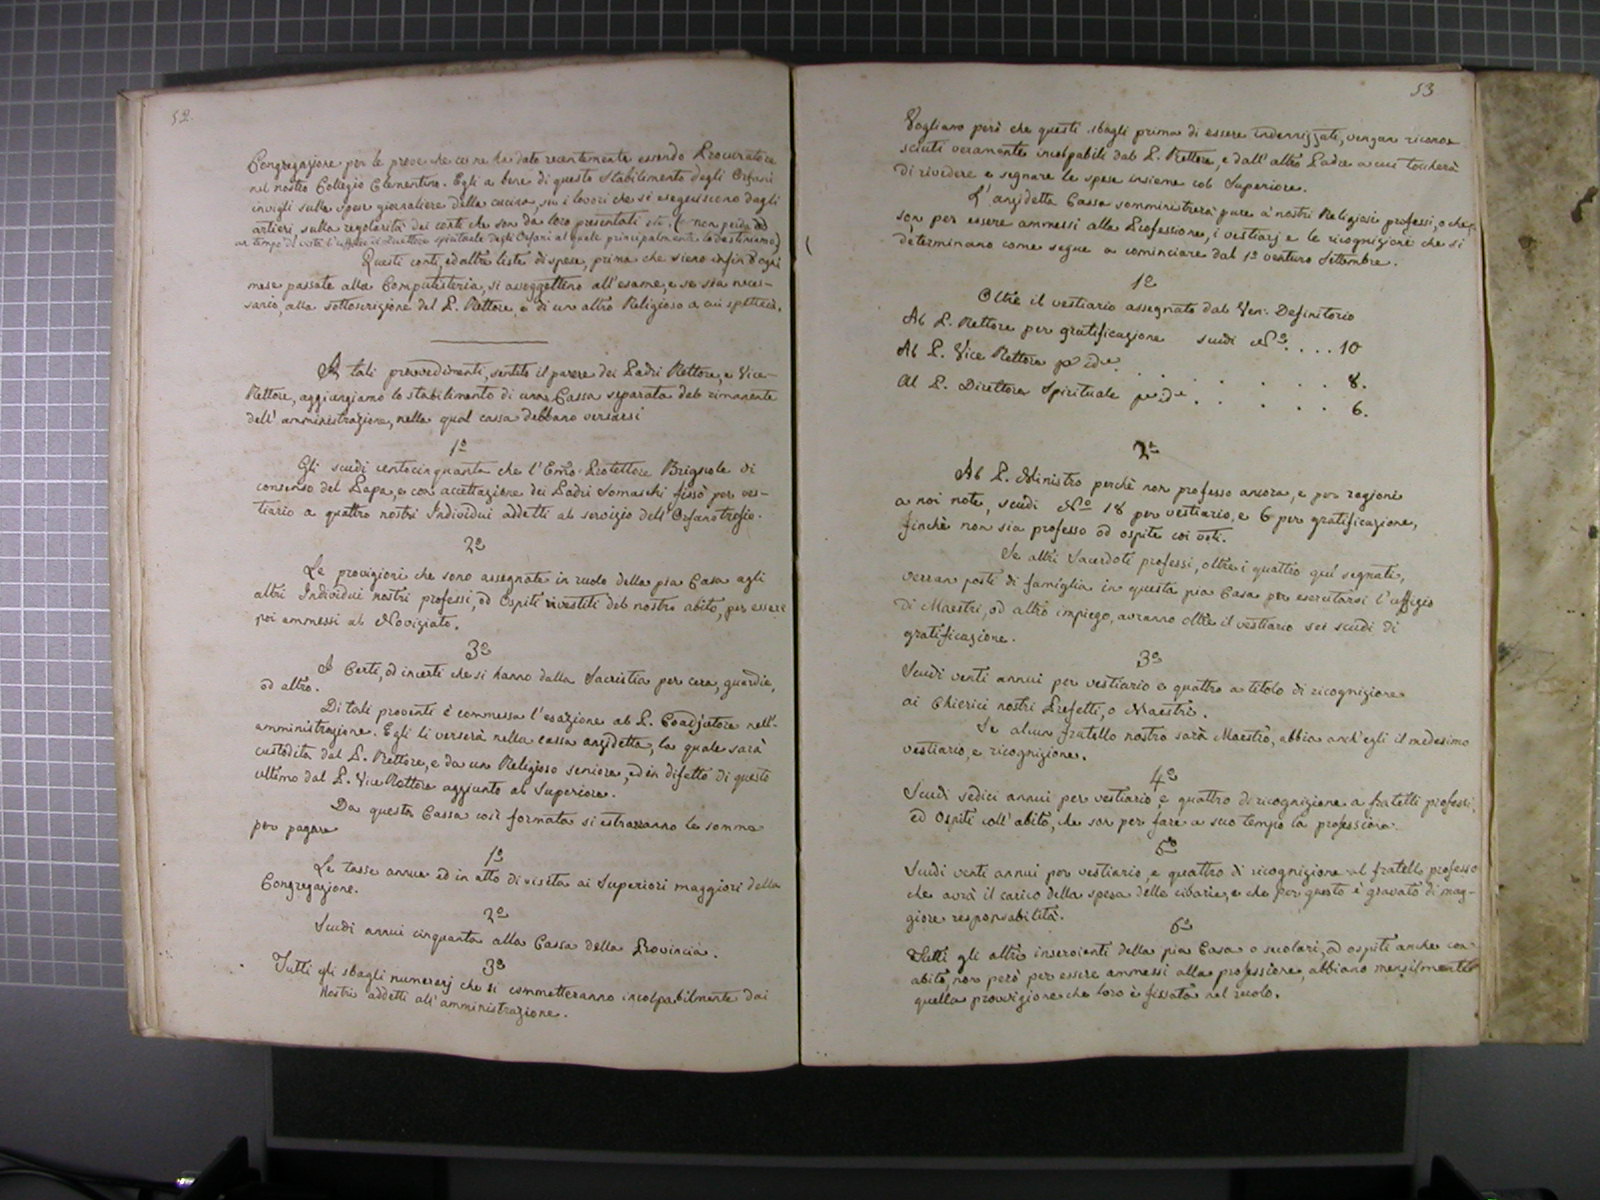 52.
Congregazione per le prove che ce ne ha date recentemente essendo Procuratore
nel nostro Collegio Clementino. Egli a bene di questo Stabilimento degli Orfani
invigli sulle spese giornaliere della cucina, su i lavori che si eseguiscono dagli
artieri, sulla regolarità dei conti che son da loro presentati etc. (e non perda ad
un tempo di vista l'uffizio di Direttore spirituale degli Orfani al quale principalmente lo destiniamo)
Questi conti, ed altre liste di spese, prima che sieno infin d'ogni
mese passate alla Computisteria, si assoggettino all'esame, e se sia neces-
sario, alla sottoscrizione del P. Rettore, e di un altro Religioso a cui spetterà.
A tali provvedimenti, sentito il parere dei Padri Rettore, e Vice-
Rettore, aggiungiamo lo stabilimento di una Cassa separata del rimanente
dell'amministrazione, nella qual cassa debbano versarsi
1º
Gli scudi centocinquanta che l'Emo Protettore Brignole di
consenso del Papa, e con accettazione dei Padri Somaschi fissò per ves-
tiario a quattro nostri Individui addetti al servizio dell'Orfanotrofio.
2º
Le provigioni che sono assegnate in ruolo della pia Casa agli
altri Individui nostri professi, od Ospiti rivestiti del nostro abito, per essere
poi ammessi al Noviziato.
3º
I Certi, od incerti che si hanno dalla Sacristia per cera, guardie,
od altro.
Di tali proventi è commessa l'esazione al P. Coadjutore nell'
amministrazione. Egli li verserà nella cassa anzidetta, la quale sarà
custodita dal P. Rettore, e da un Religioso seniore, ed in difetto di questo
ultimo dal P. Vice Rettore aggiunto al Superiore.
Da questa Cassa così formata si estrarranno le somme
per pagare
1º
Le tasse annue ed in atto di visita ai Superiori maggiori della
Congregazione.
2º
Scudi annui cinquanta alla Cassa della Provincia.
3º
Tutti gli sbagli numerarj che si commetteranno incolpabilmente dai
Nostri addetti all'amministrazione.
53
Vogliamo però che questi sbagli prima di essere indennizzati, vengan ricono-
sciuti veramente incolpabili dal P. Rettore, e dall'altro Padre a cui toccherà
di rivedere e segnare le spese insieme col Superiore.
L'anzidetta Cassa somministrerà pure a' nostri Religiosi professi, o che
son per essere ammessi alla Professione, i vestiarj e le ricognizioni che si
determinano come segue a cominciare dal 1º venturo Settembre.
1º
Oltre il vestiario assegnato dal Ven: Definitorio
Al P. Rettore per gratificazione scudi Nº. . . . 10
Al P. Vice Rettore pr. ide . . . . . . . . 8.
Al P. Direttore Spirituale pr. ide . . . . . . 6.
2º
Al P. Ministro perchè non professo ancora, e per ragioni
a noi note, scudi Nº 18 per vestiario, e 6 per gratificazione,
finchè non sia professo od ospite coi voti.
Se altri Sacerdoti professi, oltre i quattro quì segnati,
verran posti di famiglia in questa pia Casa per esercitarvi l'uffizio
di Maestri, od altro impiego, avranno oltre il vestiario sei scudi di
gratificazione.
3º
Scudi venti annui per vestiario e quattro a titolo di ricognizione
ai Chierici nostri Prefetti, o Maestri.
Se alcun fratello nostro sarà Maestro, abbia anch'egli il medesimo
vestiario, e ricognizione.
4º
Scudi sedici annui per vestiario e quattro di ricognizione a fratelli professi,
ed Ospiti coll'abito, che son per fare a suo tempo la professione.
5º
Scudi venti annui per vestiario, e quattro di ricognizione al fratello professo
che avrà il carico della spesa delle cibarie, e che per questo è gravato di mag-
giore responsabilità.
6º
Tutti gli altri inservienti della pia Casa o secolari, od ospiti anche con
abito, non però per essere ammessi alla professione, abbiano mensilmente
quella provvigione che loro è fissata nel ruolo.